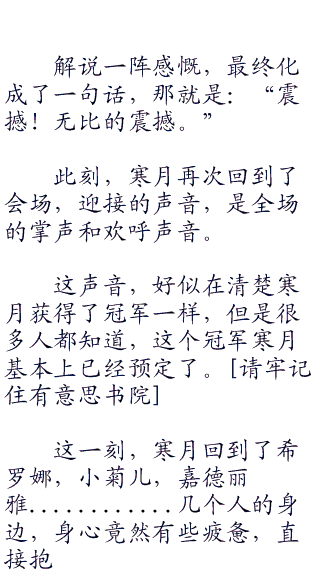 解说一阵感慨，最终化
成了一句话，那就是：“震
撼！无比的震撼。”
此刻，寒月再次回到了
会场，迎接的声音，是全场
的掌声和欢呼声音。
这声音，好似在清楚寒
月获得了冠军一样，但是很
多人都知道，这个冠军寒月
基本上已经预定了。[请牢记
住有意思书院]
这一刻，寒月回到了希
罗娜，小菊儿，嘉德丽
雅............几个人的身
边，身心竟然有些疲惫，直
接抱